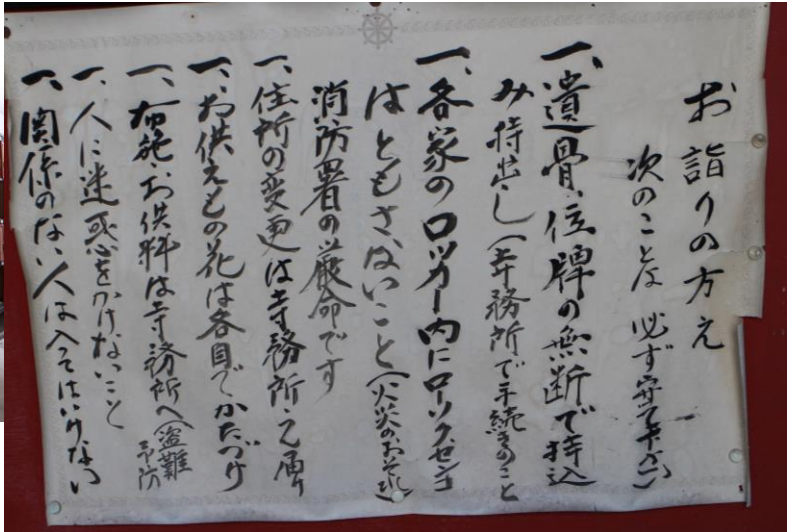 お詣りの方え
次のことは必ず守て下さい
一、遺骨、位牌の無断で持込
み持出し(寺務所で手続きのこと
一、各家のロッカー内にローソクセンコ
はともさないこと(火災のおそれ)
消防署の厳命です
一、住所の変更は寺務所え届
一、お供えもの花は各自でかたづけ
一、布施、お供料は寺務所へ(盗難
予防
一、人に迷惑をかけないこと
一、関係のない人は入ってはいけない